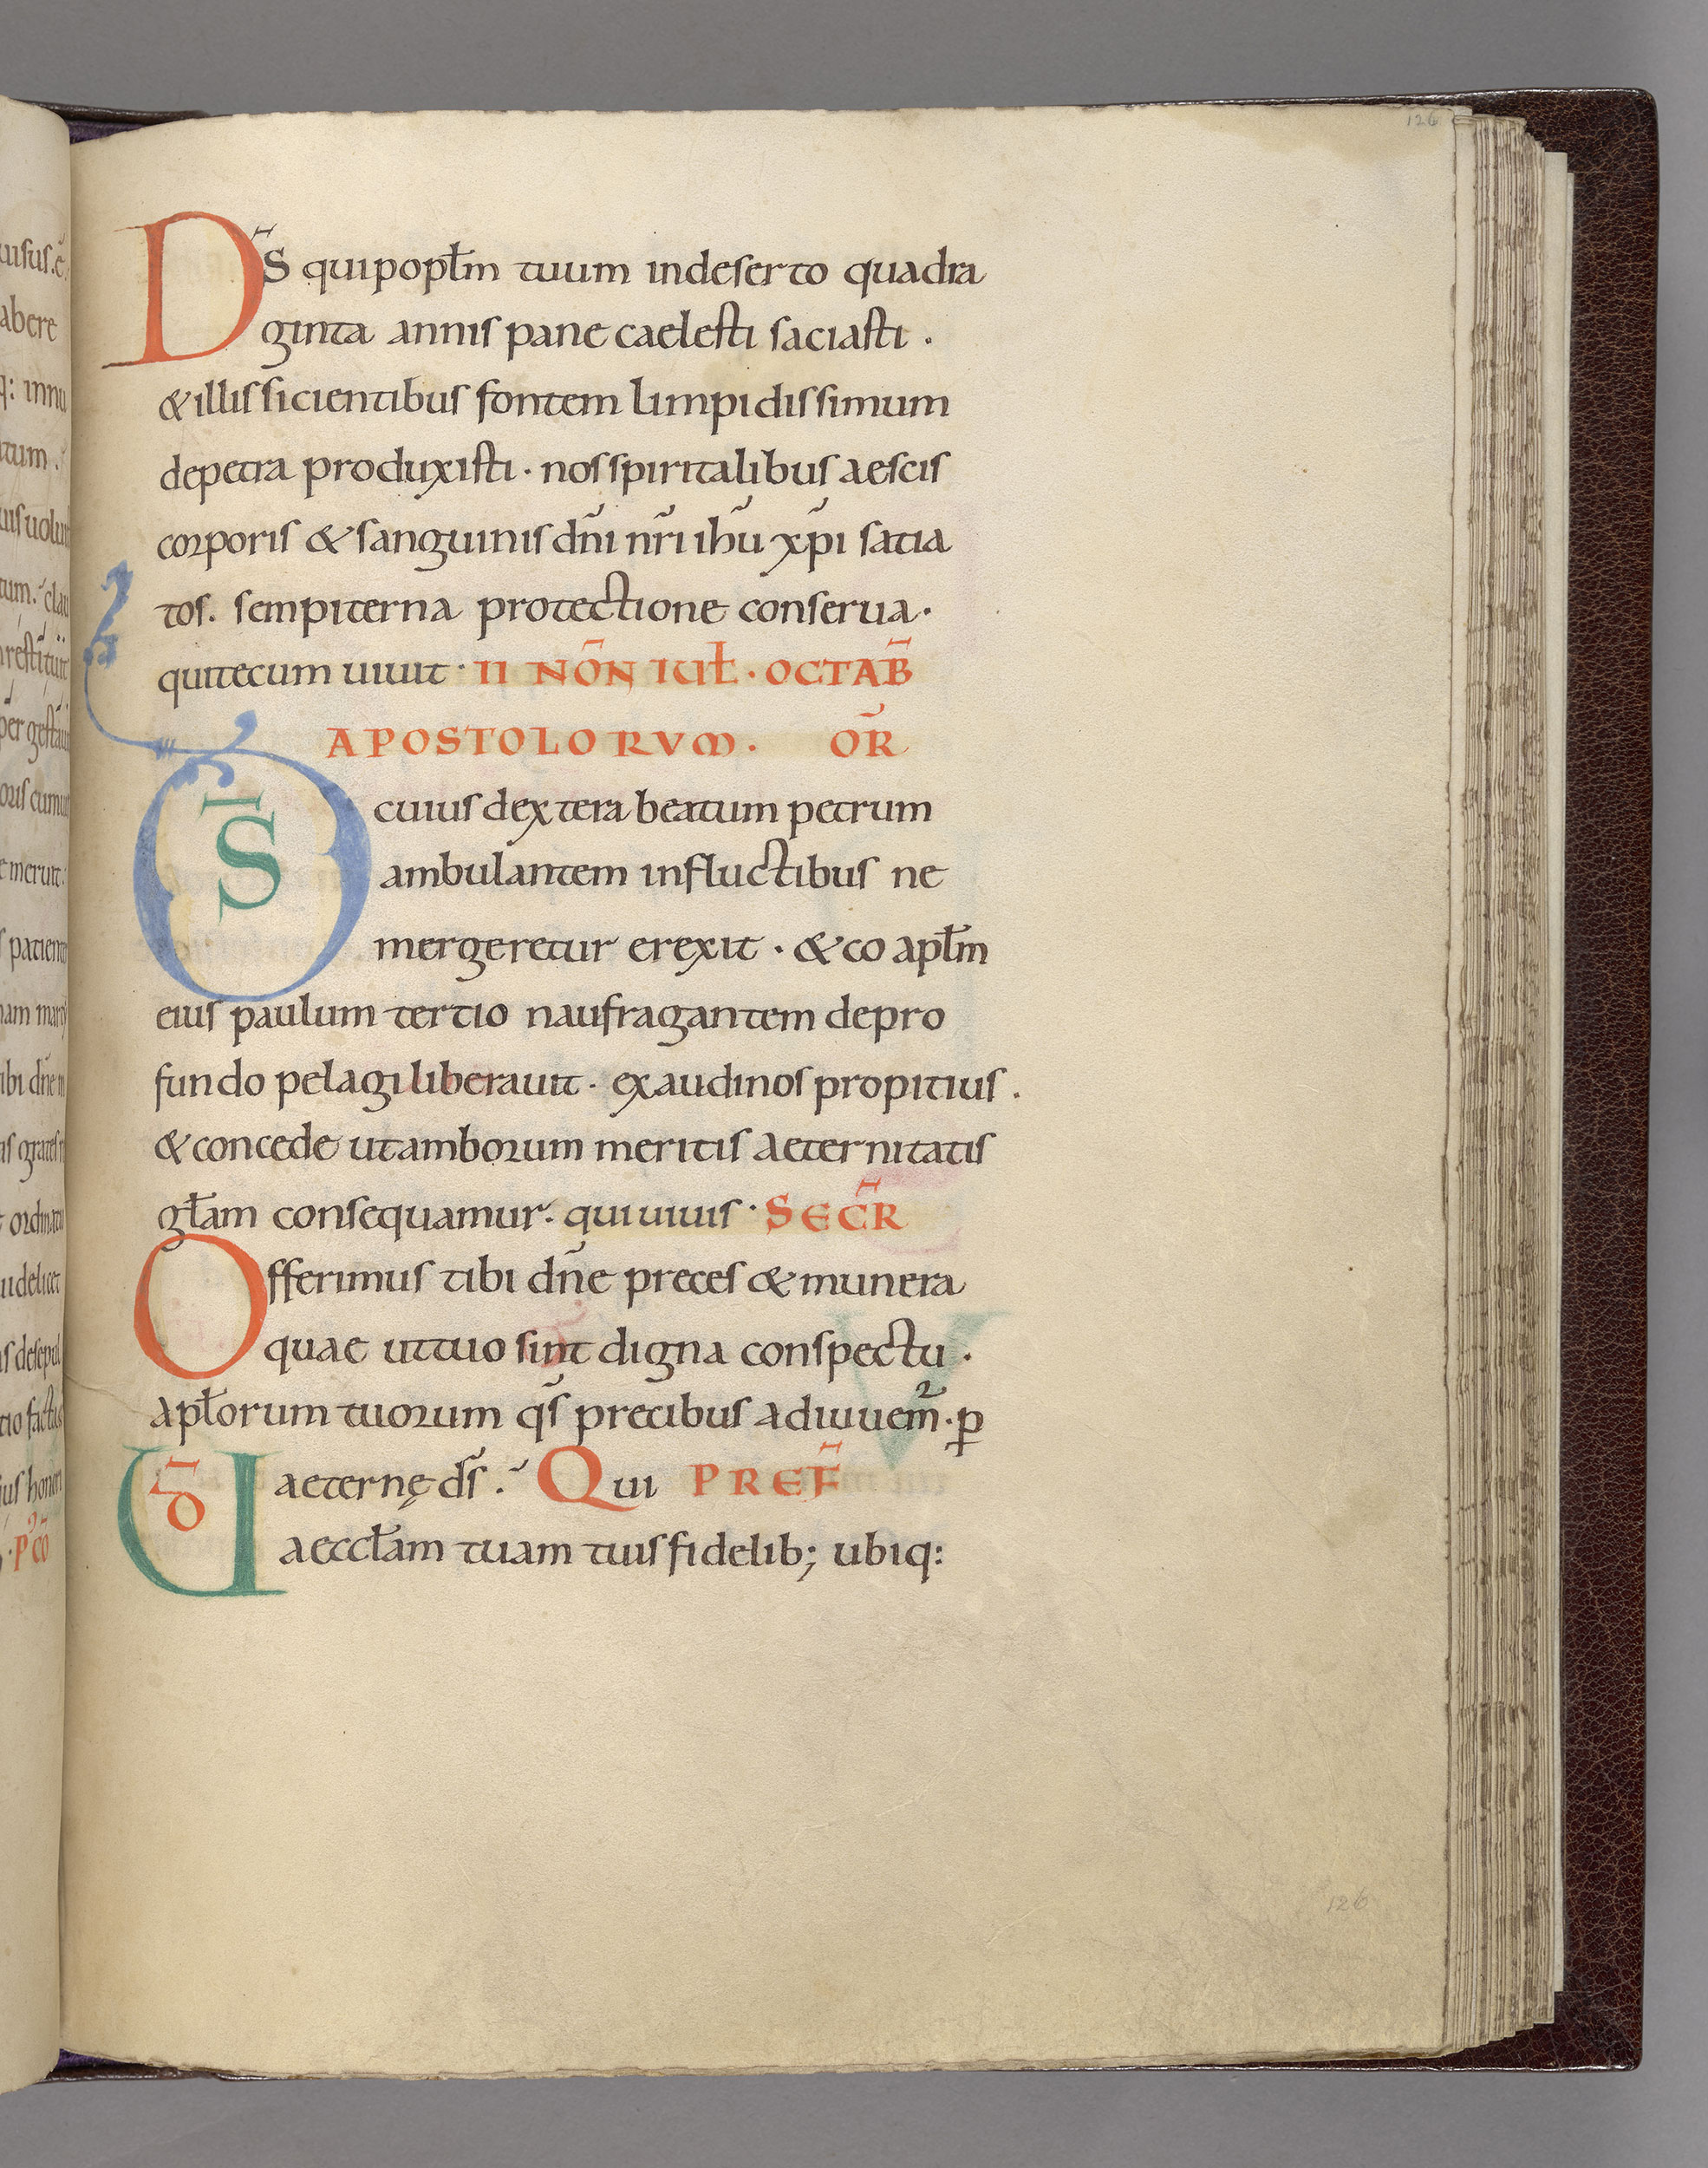 126
D̄S qui popłm tuum in deserto quadra
ginta annis pane caelesti saciasti .
& illis sicientibus fontem limpidissimum
de petra produxisti · nos spiritalibus aescis
corporis & sanguinis dn̄i nr̄i ihū xp̄i satia
tos. sempiterna protectione conserua·
qui tecum uiuit · II NŌN IUŁ · OCTAB̄
APOSTOLORVM · OR̄
D̄S cuius dextera beatum petrum
ambulantem in fluctibus ne
mergeretur erexit · & co apłm
eius paulum tertio naufragantem de pro
fundo pelagi liberauit · exaudi nos propitius .
& concede ut amborum meritis aeternitatis
głam consequamur · qui uiuis · SECR̄
Offerimus tibi dn̄e preces & munera
quae ut tuo sint digna conspectu ·
apłorum tuorum qs̄ precibus adiuuem̄ · ꝑ
UD̄ aeternę ds̄ . Qui PREF̄
aeccłam tuam tuis fidelib; ubiq:
126